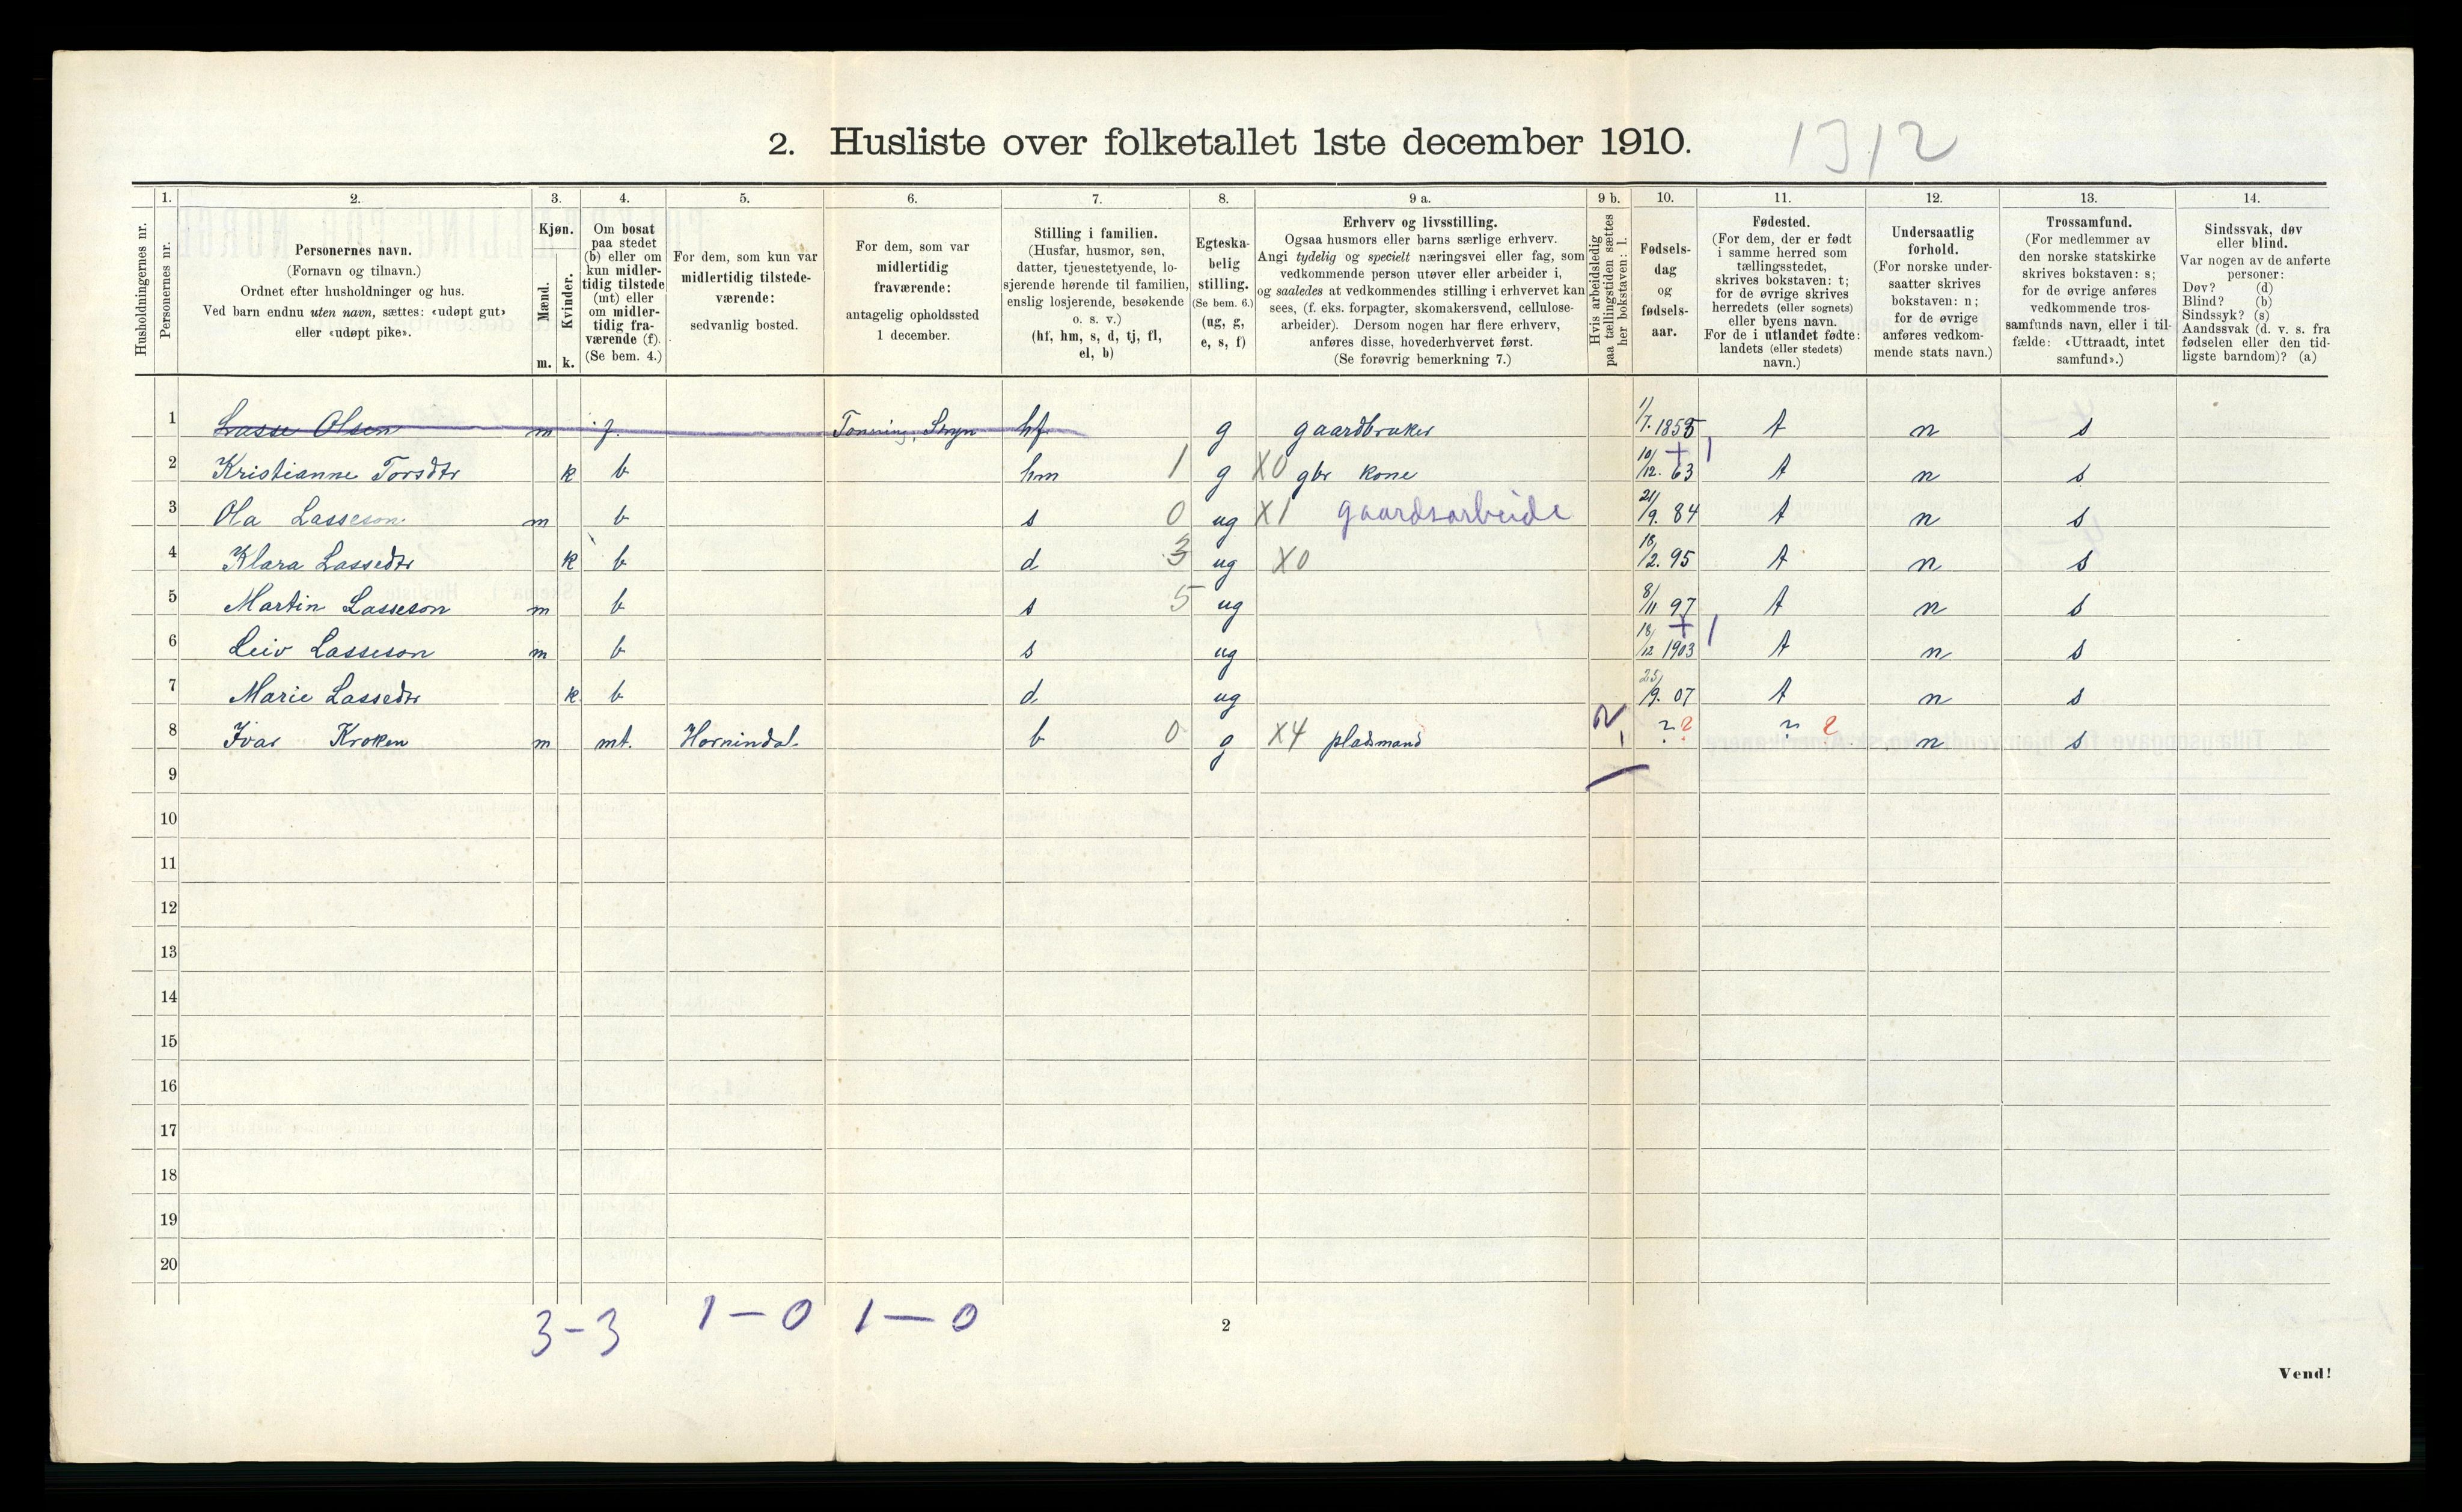 2. Husliste over folketallet 1ste december 1910. 1312
Husholdningernes nr.
1. Personernes nr.
2. Personernes navn. (Fornavn og tilnavn.) Ordnet efter husholdninger og hus. Ved barn endnu uten navn, sættes: «udøpt gut» eller «udøpt pike».
3. Kjøn. Mænd. m. Kvinder. k.
4. Om bosat paa stedet (b) eller om kun midlertidig tilstede (mt) eller om midlertidig fraværende (f). (Se bem. 4.)
5. For dem, som kun var midlertidig tilstedeværende: sedvanlig bosted.
6. For dem, som var midlertidig fraværende: antagelig opholdssted 1 december.
7. Stilling i familien. (Husfar, husmor, søn, datter, tjenestetyende, losjerende hørende til familien, enslig losjerende, besøkende o. s. v.) (hf, hm, s, d, tj, fl, el, b)
8. Egteskabelig stilling. (Se bem. 6.) (ug, g, e, s, f)
9 a. Erhverv og livsstilling. Ogsaa husmors eller barns særlige erhverv. Angi tydelig og specielt næringsvei eller fag, som vedkommende person utøver eller arbeider i, og saaledes at vedkommendes stilling i erhvervet kan sees, (f. eks. forpagter, skomakersvend, cellulosearbeider). Dersom nogen har flere erhverv, anføres disse, hovederhvervet først. (Se forøvrig bemerkning 7.)
9 b. Hvis arbeidsledig paa tællingstiden sættes her bokstaven: l.
10. Fødselsdag og fødselsaar.
11. Fødested. (For dem, der er født i samme herred som tællingsstedet, skrives bokstaven: t; for de øvrige skrives herredets (eller sognets) eller byens navn. For de i utlandet fødte: landets (eller stedets) navn.)
12. Undersaatlig forhold. (For norske undersaatter skrives bokstaven: n; for de øvrige anføres vedkommende stats navn.)
13. Trossamfund. (For medlemmer av den norske statskirke skrives bokstaven: s; for de øvrige anføres vedkommende trossamfunds navn, eller i tilfælde: «Uttraadt, intet samfund».)
14. Sindssvak, døv eller blind. Var nogen av de anførte personer: Døv? (d) Blind? (b) Sindssyk? (s) Aandssvak (d. v. s. fra fødselen eller den tidligste barndom)? (a)
1 Lasse Olsen m f. Tonning, Stryn hf g gaardbruker 1/7. 1855 t n s
2 Kristianne Torsdtr k b hm 1 g X0 gbr kone 10/12. 63 t n s
3 Ola Lasseson m b s 0 ug X1 gaardsarbeide 21/9. 84 t n s
4 Klara Lassedtr k b d 3 ug X0 18/2. 95 t n s
5 Martin Lasseson m b s 5 ug 8/11 97 t n s
6 Leiv Lasseson m b s ug 18/12 1903 t n s
7 Marie Lassedtr k b d ug 25/9. 07 t n s
8 Ivar Kroken m mt. Hornindal b 0 g X4 pladsmand ? ? ? ? n s
9
10
11
12
13
14
15
16
17
18
19
20
3-3 1-0 1-0
2
Vend!